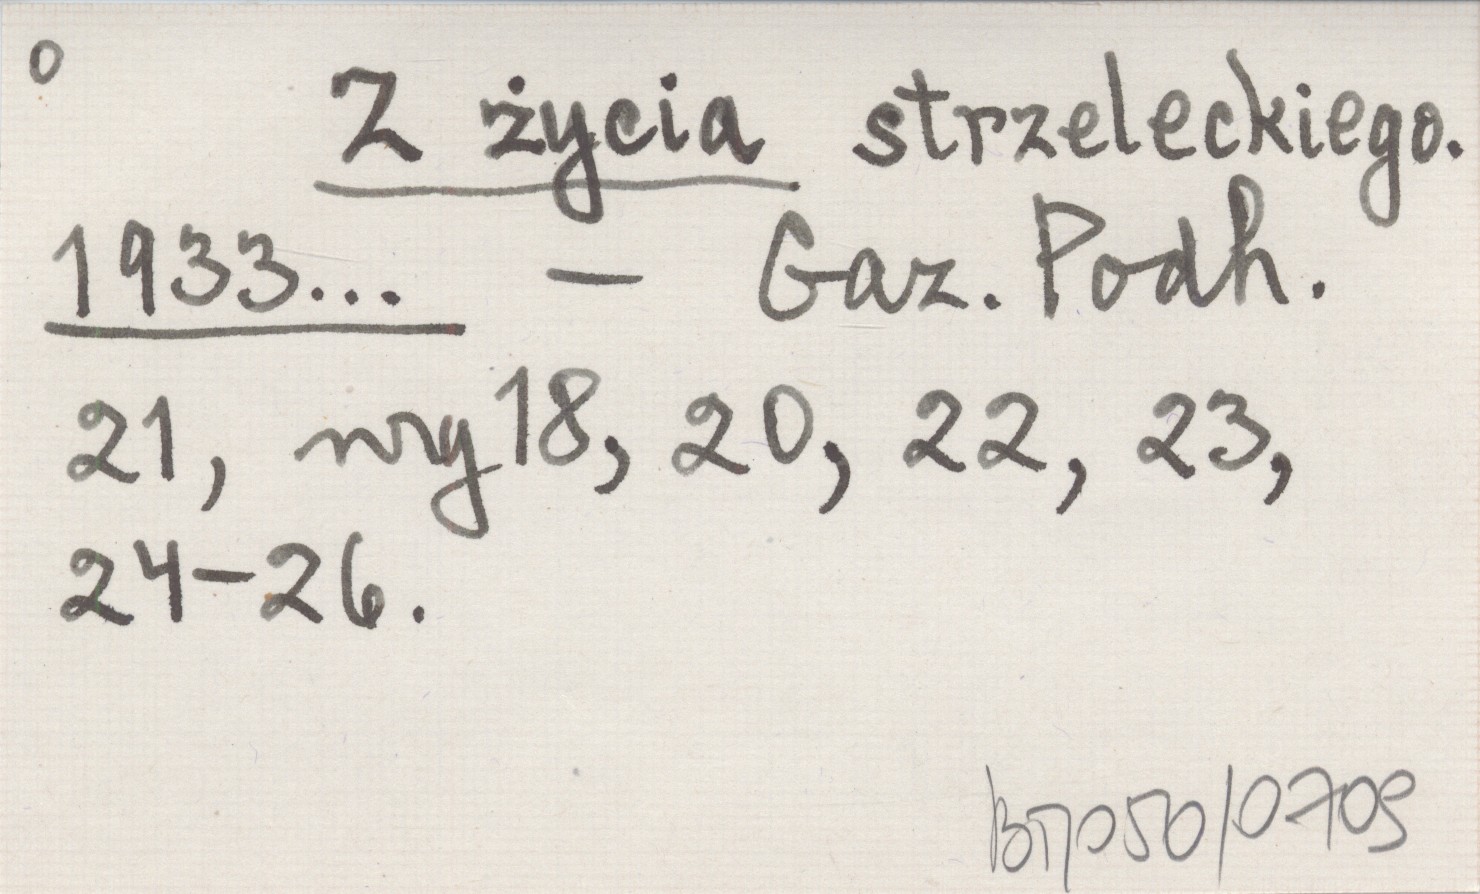 o
Z życia strzeleckiego.
1933... – Gaz. Podh.
21, nry 18, 20, 22, 23,
24–26.
BTJ050/0709